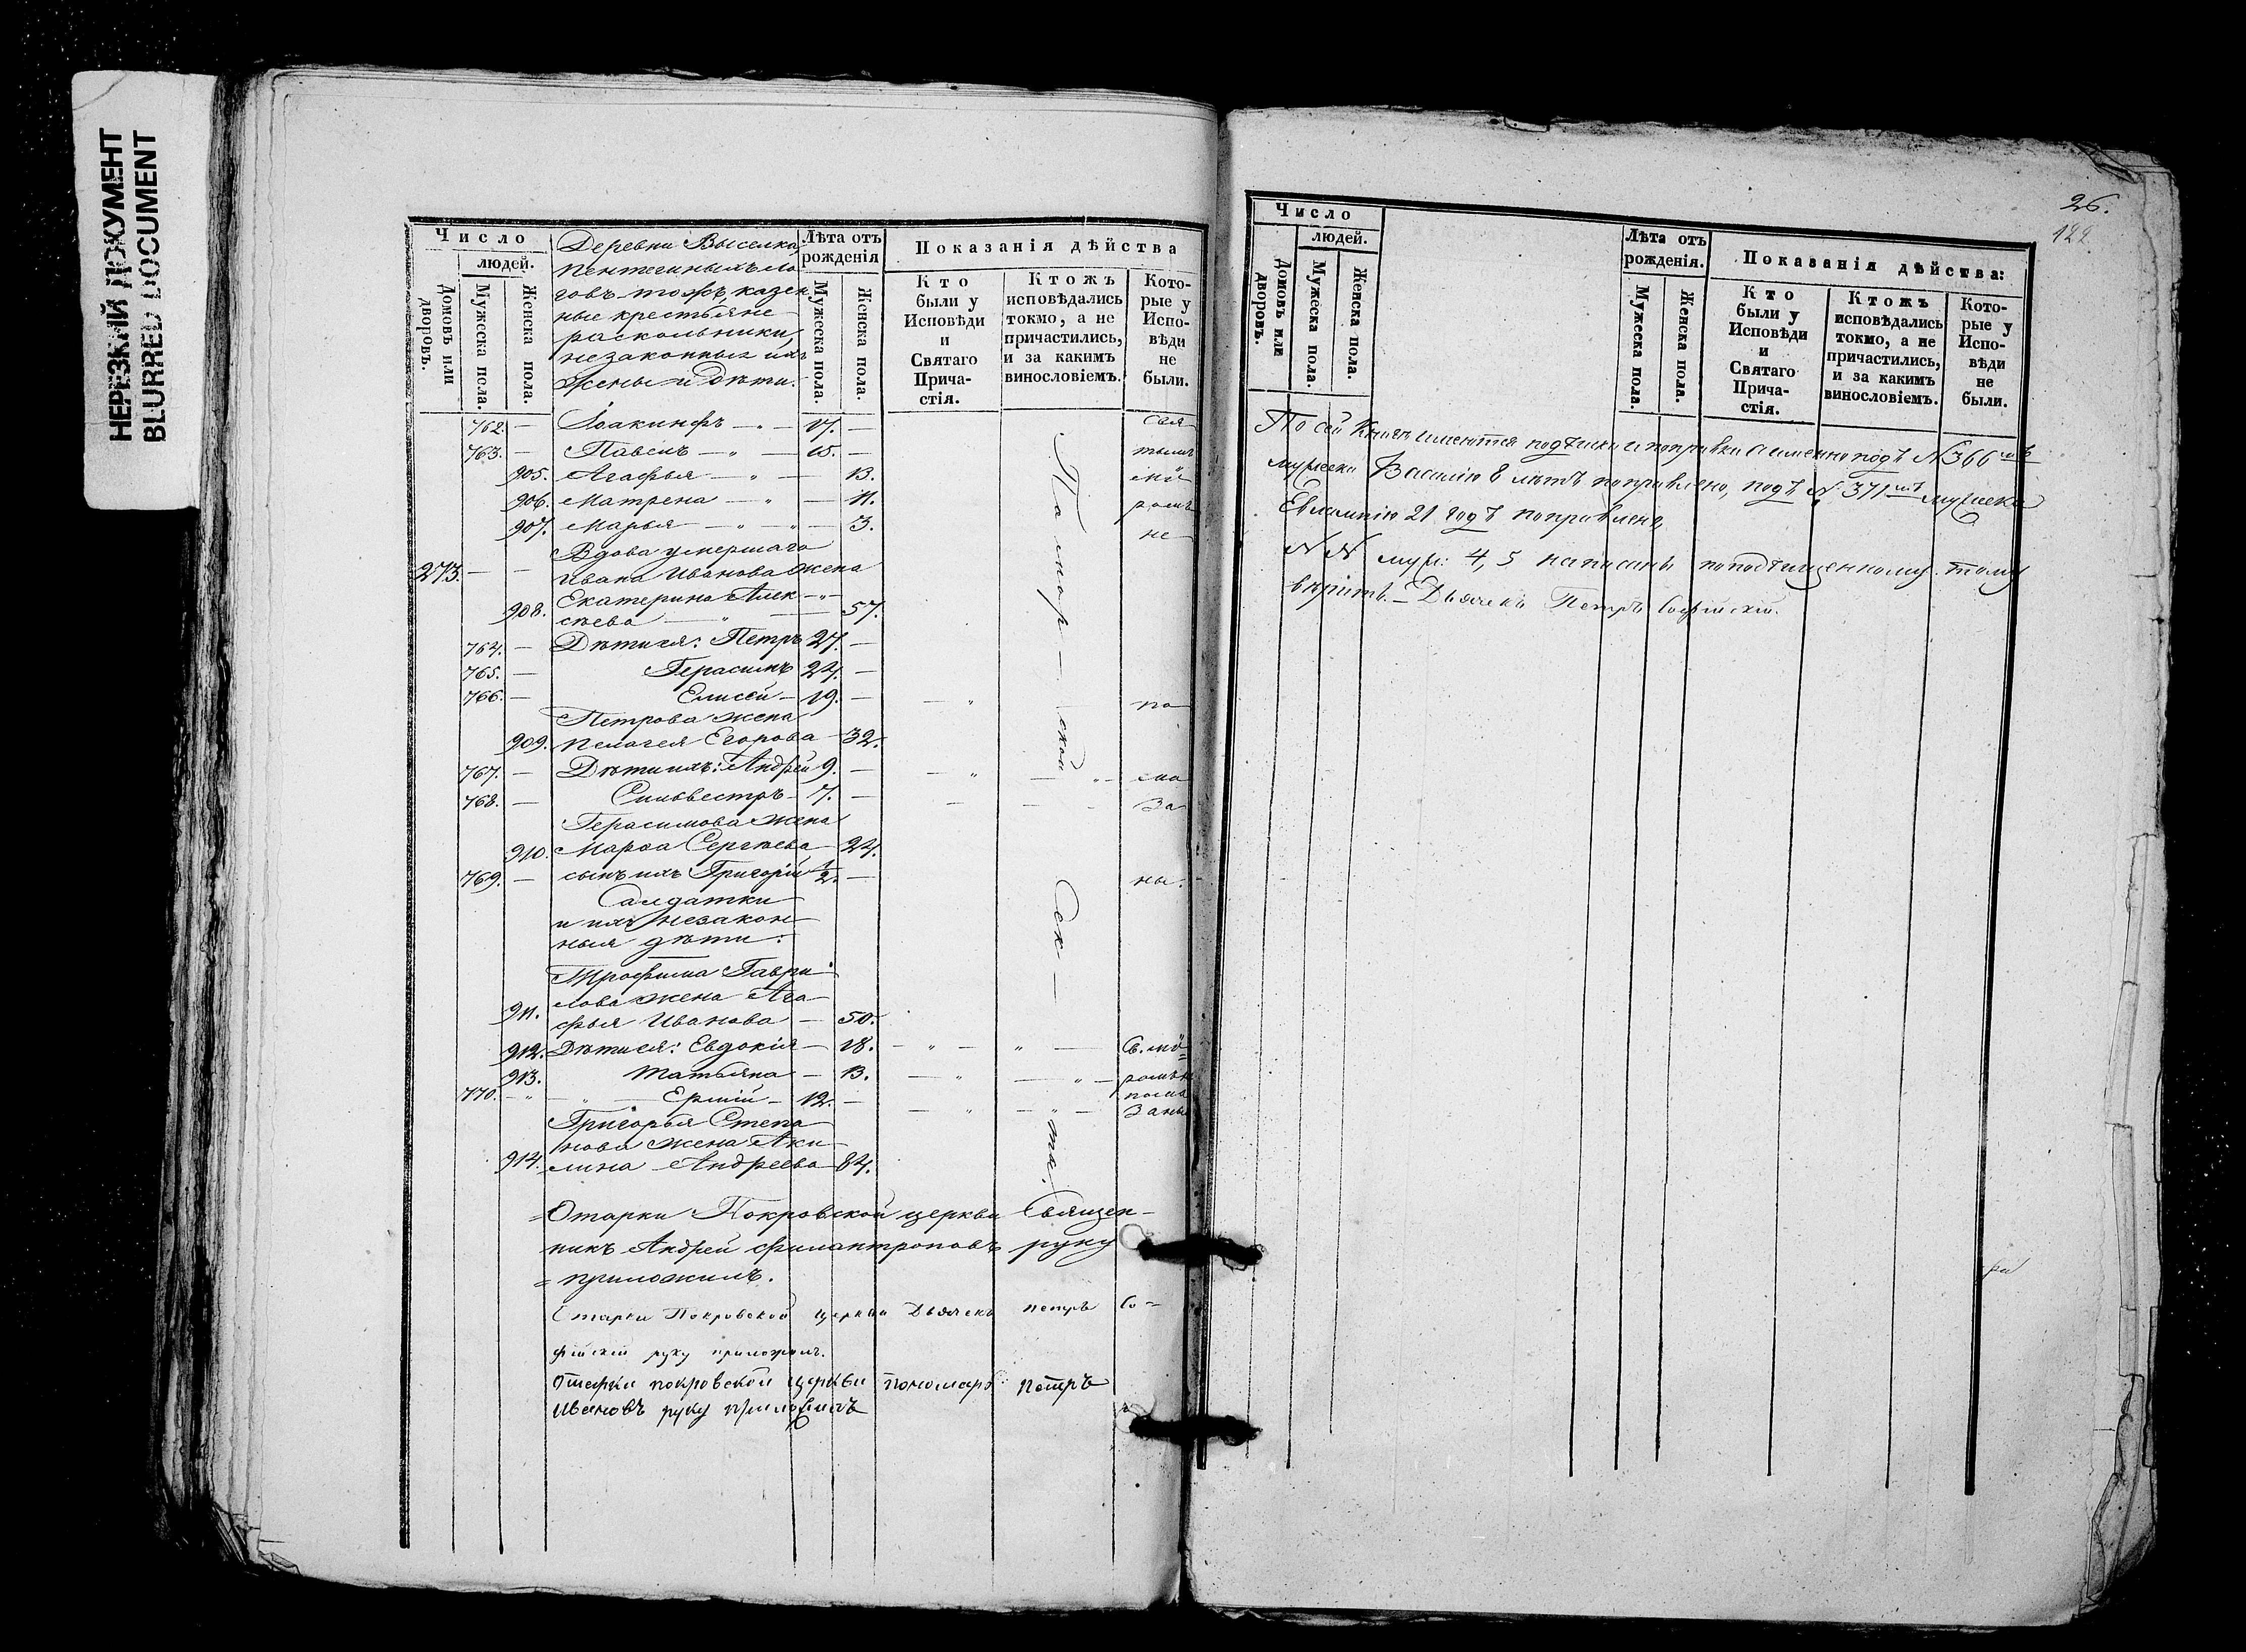 НЕРЕЗКИЙ ДОКУМЕНТ
BLURRED DOCUMENT
Число
людей.
Домовъ или дворовъ.
Мужеска пола.
Женска пола.
Деревни Выселка
Пентегиныхъ Ло
говъ тожъ, казен
ные крестьяне
раскольники,
незаконныя ихъ
жены и дѣти.
Лѣта отъ рожденія
Мужеска пола.
Женска пола.
Показанія дѣйства
Кто были у Исповѣди и Святаго Прича-стія.
Ктожъ исповѣдались токмо, а не причастились, и за какимъ винословіемъ.
Кото-рые у Испо-вѣди не были.
762. — Іоакинфъ — „ — 17. — Свя
763. — Павелъ — „ — 15. — тымъ
905. Агафья — „ — 13. мѵ
906. Матрена — „ — 11. ромъ
907. Марья — „ — „ — 3. не
Вдова умершаго
273. — — Ивана Иванова жена
Екатерина Алек — „ —
908. сѣева — „ — 57.
764. — Дѣти ея: Петръ 27. —
765. — Герасимъ 24. —
766. — Елисей — 19. — — „ по
Петрова жена
909. Пелагея Егорова — 32.
767. — Дѣти ихъ: Андрей 9. — — „ — „ — ма
768. — Сильвестръ — 7. — за
Герасимова жена
910. Марѳа Сергѣева — 24.
769. — сынъ ихъ Григорій 1/2. — ны.
Салдатки
и ихъ незакон
ныя дѣти:
Трофима Гаври
лова жена Ага
911. фья Иванова — 50.
912. Дѣти ея: Евдокія — 18. — „ — „ — Св. мѵ=
913. Татьяна — 13. — „ — „ — ромъ не
770. — „ — „ — Ермій — 12. — пома
— „ — „ — заны
Григорья Степа
нова жена Аки
914. лина Андреева — 84.
По мор — ской сек — та.
=Отарки Покровской церкви Священ-
никъ Андрей Филантроповъ руку
=приложилъ.
Отарки Покровской церкви Дьячекъ Петръ Со=
фійскій руку приложилъ.
Отарки Покровской церкви Пономарь Петръ
Ивановъ руку приложилъ
26.
122.
Число
людей.
Домовъ или дворовъ.
Мужеска пола.
Женска пола.
Лѣта отъ рожденія.
Мужеска пола.
Женска пола.
Показанія дѣйства:
Кто были у Исповѣди и Святаго Прича-стія.
Ктожъ исповѣдались токмо, а не причастились, и за какимъ винословіемъ.
Кото-рые у Испо-вѣди не были.
По сей Книгѣ имеются подчистки и поправки а именно подъ №366мъ
мужеска Василію 8 лѣтъ поправлено, подъ № 371мъ мужеска
Евлампію 21 годъ поправлено,
№№ муж: 4, 5 написаны по подчищенному. тому
вѣрить. — Дьячекъ Петръ Софійскій.